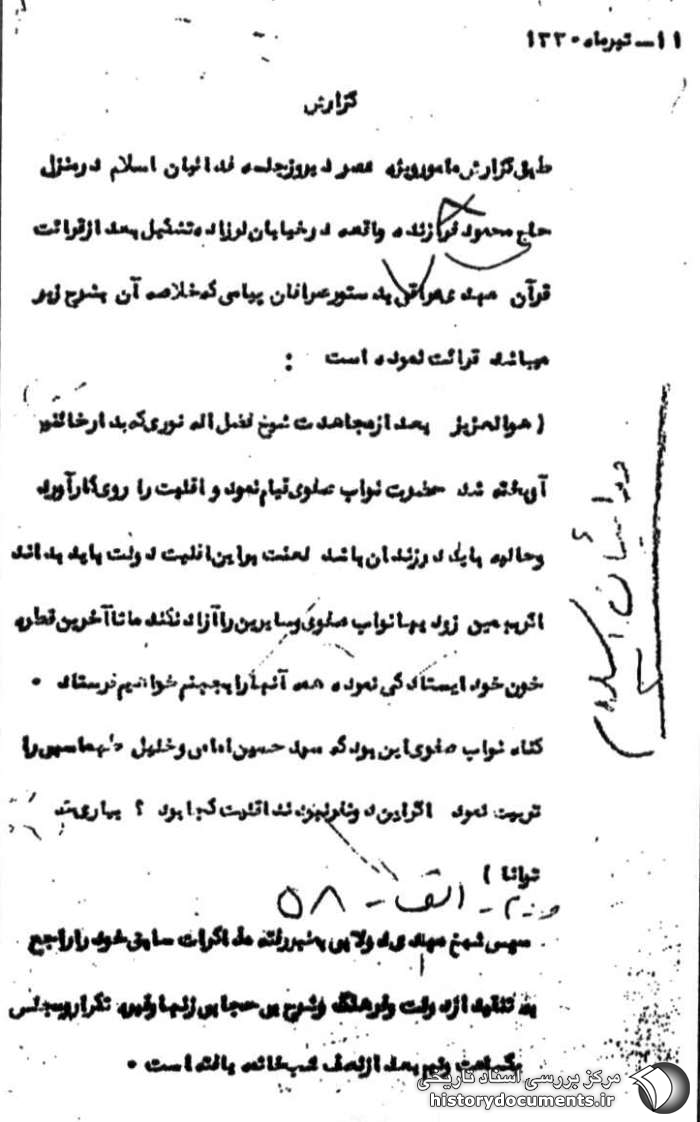 ۱۱ــ تیرماه ۱۳۳۰
گزارش
طبق گزارش مامور ویژه عصر دیروز جلسه فدائیان اسلام در منزل
حاج محمود فرازنده واقعه در خیابان لرزاده تشکیل بعد از قرائت
قرآن مهدی عراقی بدستور سران پیامی که خلاصه آن بشرح زیر
میباشد قرائت نموده است :
( هوالعزیز بعد از مجاهدت شیخ فضل اله نوری که بدار خائنین
آویخته شد حضرت نواب صفوی قیام نمود و اقلیت را روی کار آورد
وحالیه باید در زندان باشد لعنت بر این اقلیت دولت باید بداند
اگر بهمین زودیها نواب صفوی و سایرین را آزاد نکند ما تا آخرین قطره
خون خود ایستادگی نموده همه آنها را بجهنم خواهیم فرستاد .
گناه نواب صفوی این بود که سید حسین امامی و خلیل طهماسبی را
تربیت نمود اگر این دو نفر نبودند اقلیت کجا بود ؟ بیاری
توانا )
الف - ۵۸
سپس شیخ مهدی دولابی بمنبر رفته مذاکرات سابق خود را راجع
به تنقید از دولت و فرهنگ و شرح بی حجابی زنها وغیره تکرار و مجلس
یکساعت ونیم بعد از نصف شب خاتمه یافته است .
فدائیان اسلام
مرکز بررسی اسناد تاریخی
historydocuments.ir